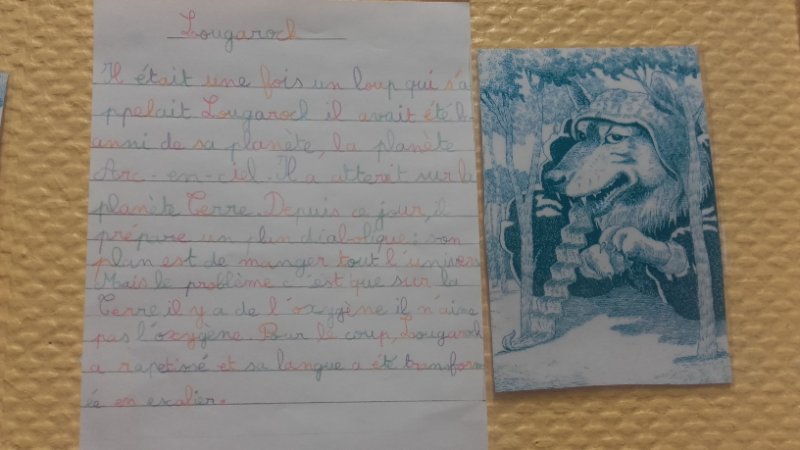 Lougarock
Il était une fois un loup qui s'a
ppelait Lougarock il avait été b
anni de sa planète, la planète
Arc-en-ciel. Il a atteret sur la
planète Terre. Depuis ce jour, il
prépare un plan diabolique : son
plan est de manger tout l'univers
Mais le problème c'est que sur la
Terre il y a de l'oxygène il n'aime
pas l'oxygène. Pour le coup, Lougarock
a rapetissé et sa langue a été transform
ée en escalier.